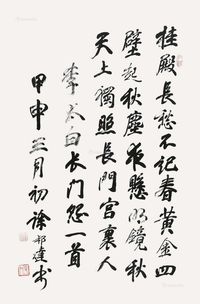 桂殿長愁不記春黃金四
壁起秋塵夜懸明鏡秋
天上獨照長門宮裏人
李太白长门怨一首
甲申三月初徐邦達书